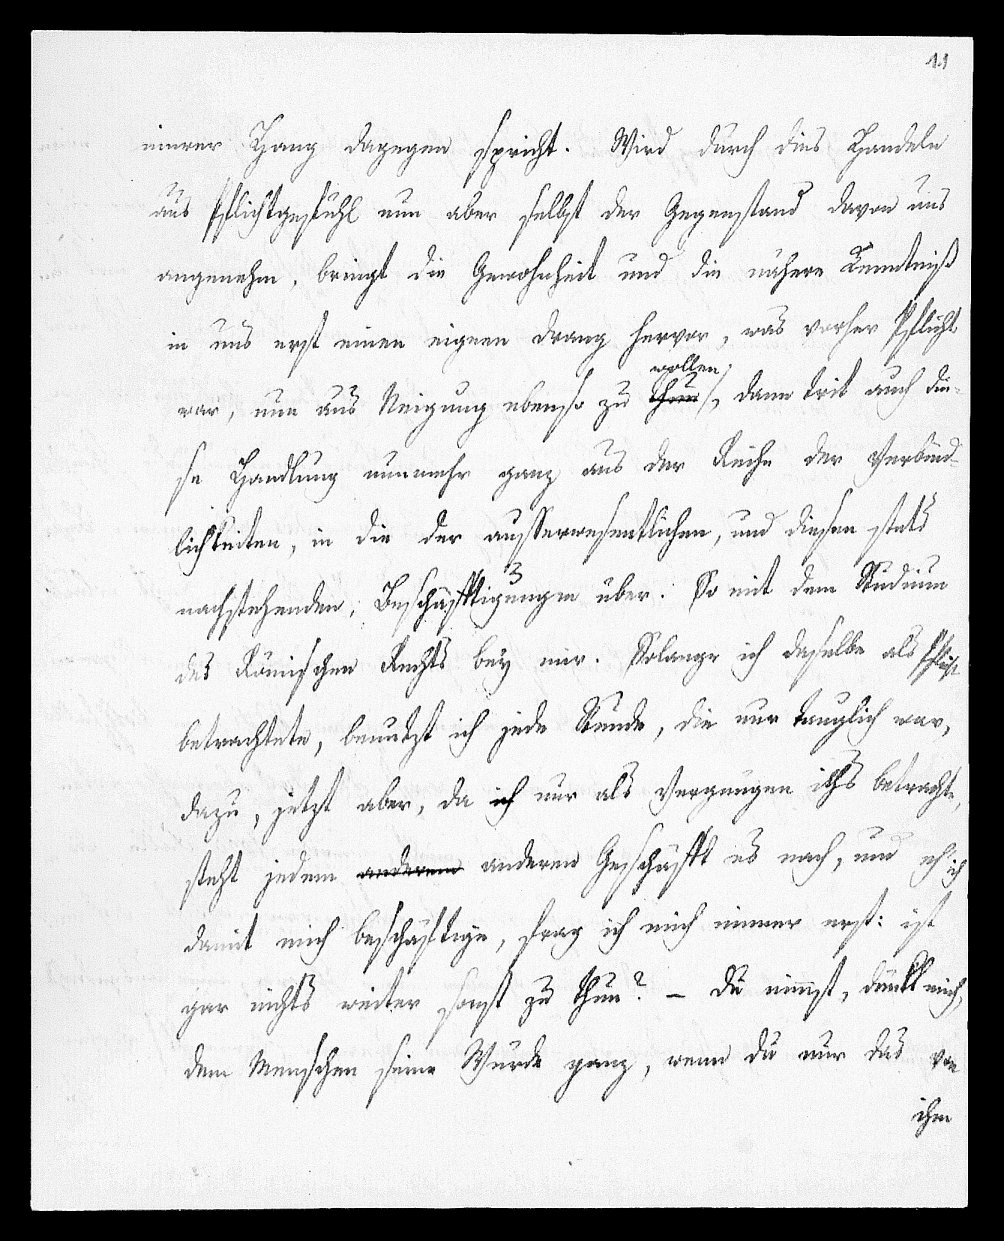 11
innrer Hang dagegen spricht. Wird durch dies Handeln
aus Pflichtgefühl nun aber selbst der Gegenstand davon uns
angenehm, bringt die Gewohnheit und die nähere Kenntniß
in uns erst einen eignen Drang hervor, was vorher Pflicht
wollen,
war, nun aus Neigung ebenso zu thun, dann trit auch die-
se Handlung nunmehr ganz aus der Reihe der Verbind-
lichkeiten, in die der ausserwesentlichen, und diesen stets
nachstehenden, Beschäftigungen über. So mit dem Studium
des Römischen Rechts bey mir. Solange ich dasselbe als Pflicht
betrachtete, benutzt ich jede Stunde, die nur tauglich war,
dazu, jetzt aber, da ich nur als Vergnügen ichs betrachte,
steht jedem anderen anderen Geschäfft es nach, und eh' ich
damit mich beschäftige, frag ich mich immer erst: ist
gar nichts weiter sonst zu thun? – Du nimmst, dünkt mich,
dem Menschen seine Würde ganz, wenn du nur das von
ihm